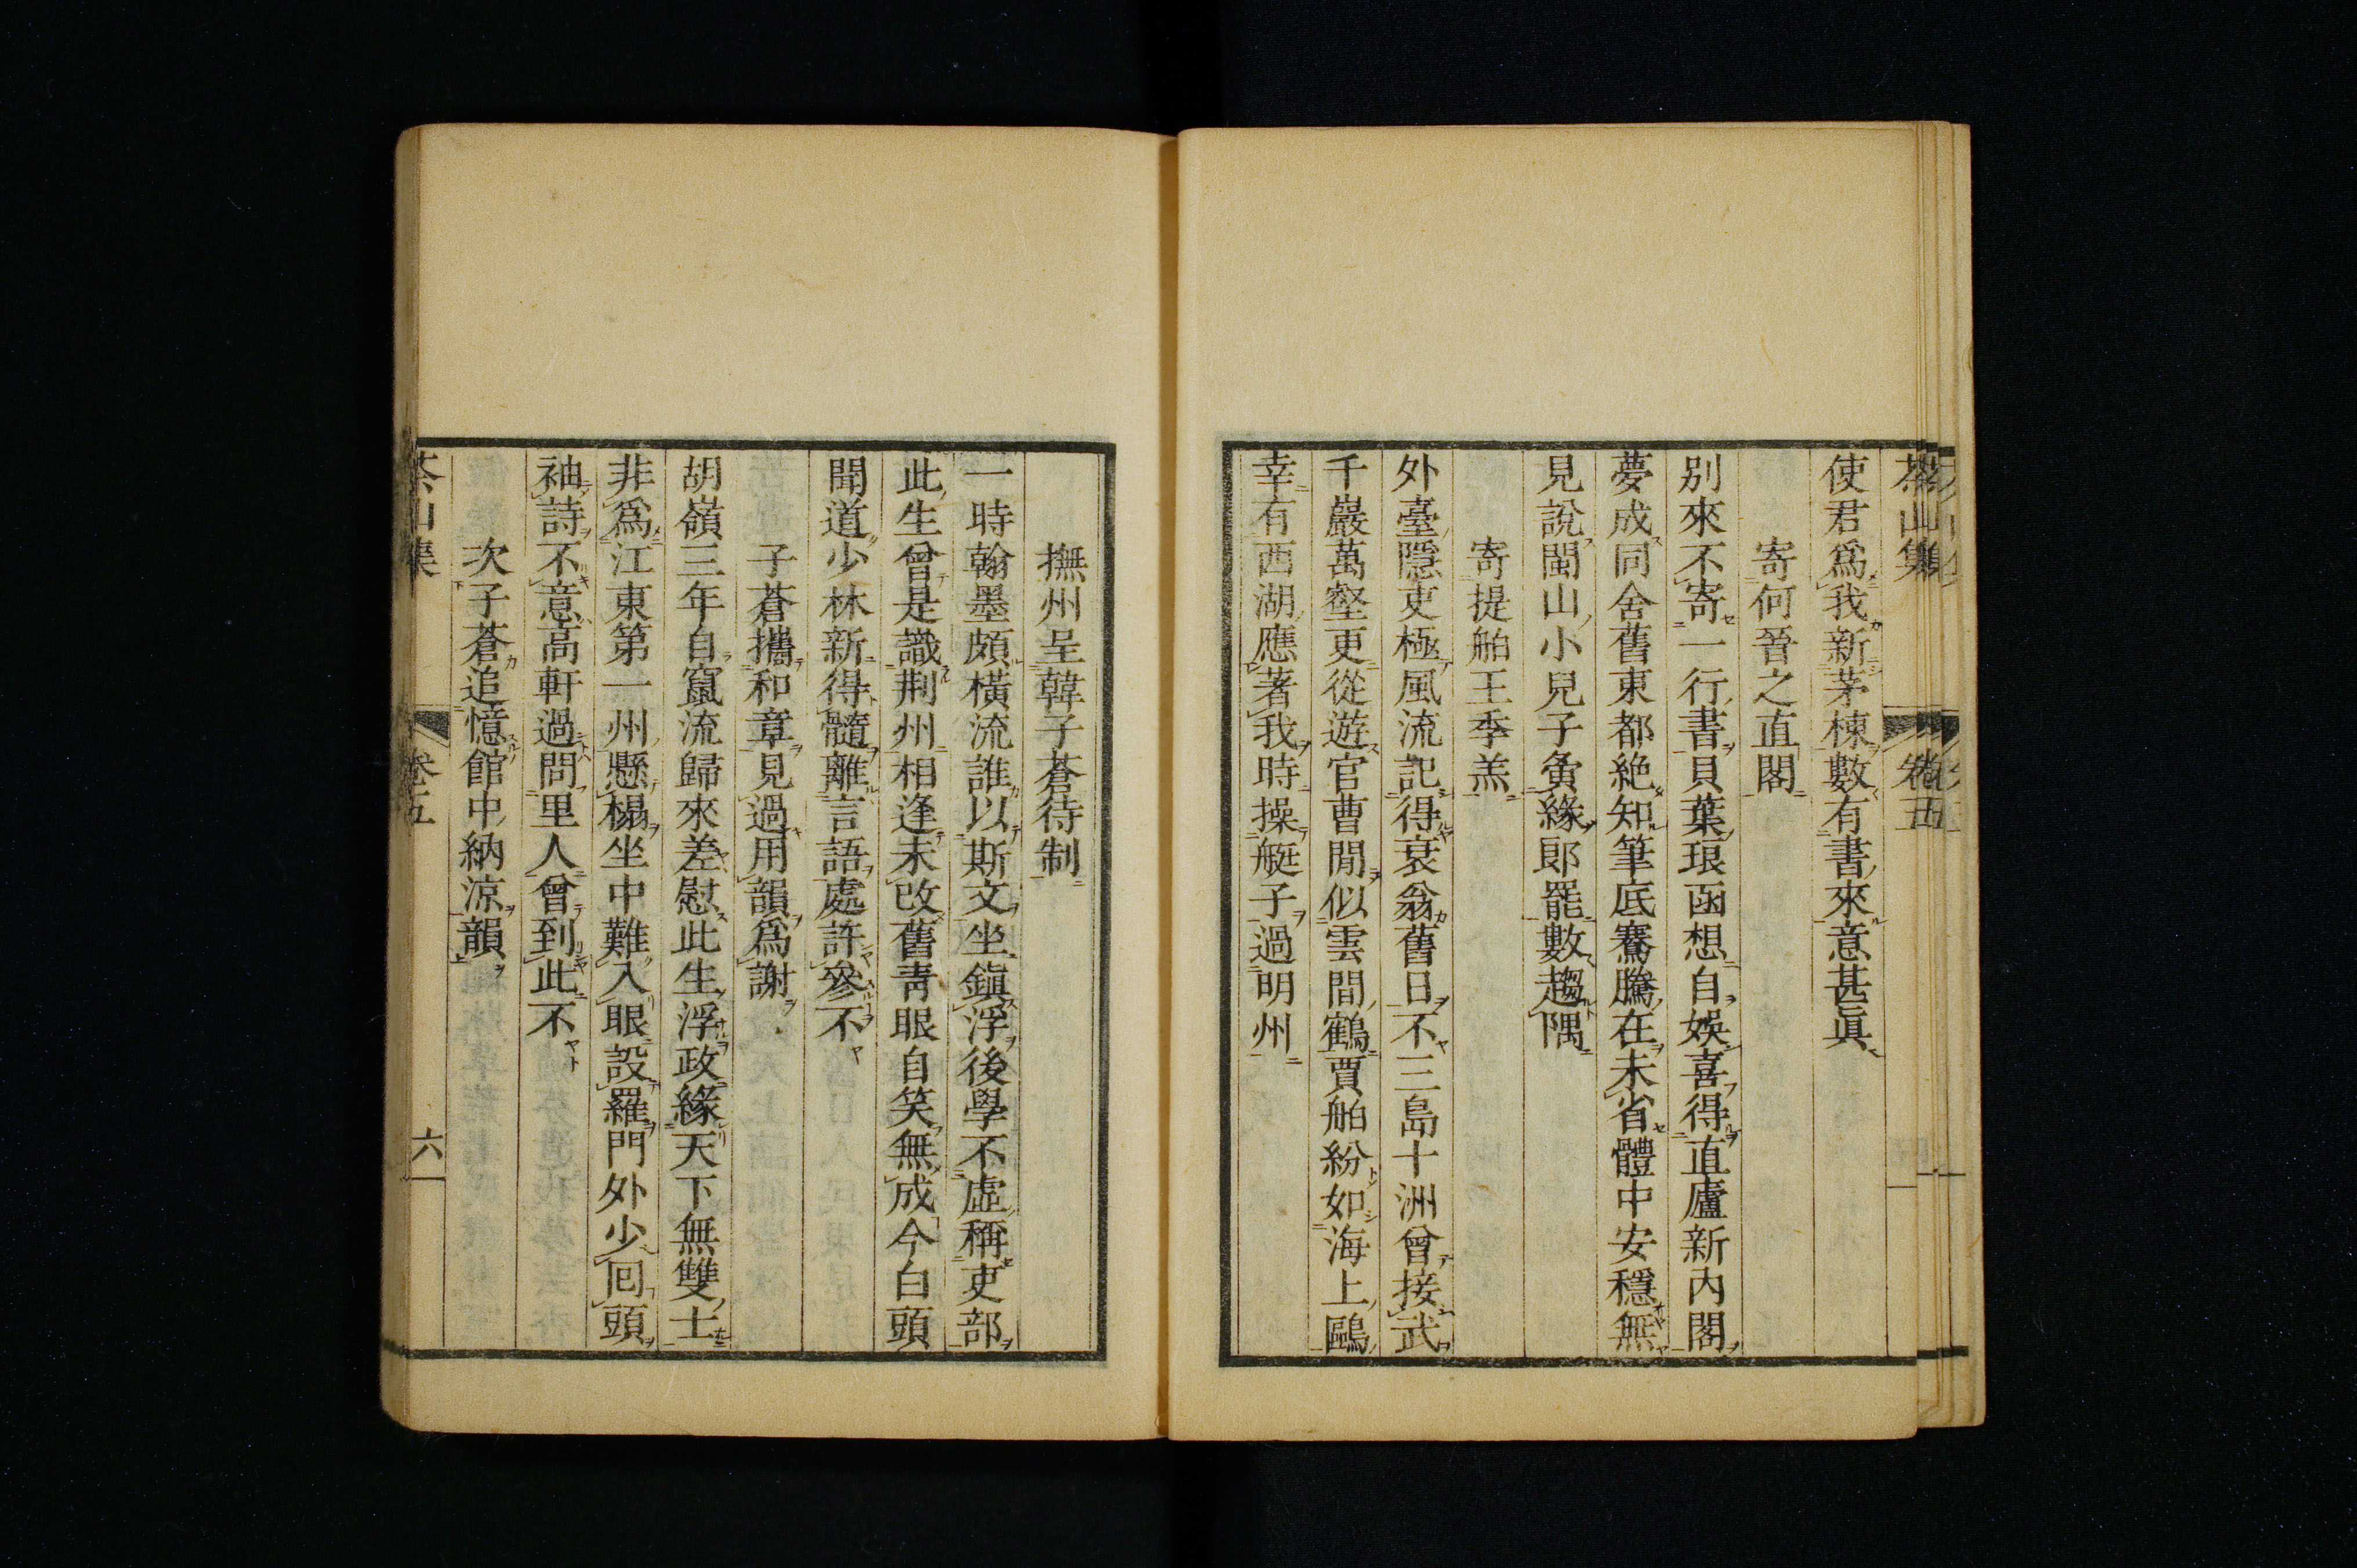 茶山集 卷五
使君爲我新茅棟數有書來意甚眞
寄何晉之直閣
别來不寄一行書貝葉琅函想自娛喜得直廬新內閣
夢成同舍舊東都絶知筆底騫騰在未省體中安穩無
見說閩山小兒子夤緣郞罷數趨隅
寄提舶王季羔
外臺隱吏極風流記得衰翁舊日不三島十洲曾接武
千巖萬壑更從遊官曹閒似雲間鶴賈舶紛如海上鷗
幸有西湖應著我時操艇子過明州
撫州呈韓子蒼待制
一時翰墨頗橫流誰以斯文坐鎭浮後學不虛稱吏部
此生曾是識荆州相逢未改舊靑眼自笑無成今白頭
聞道少林新得髓離言語處許參不
子蒼攜和章見過用韻爲謝
胡嶺三年自竄流歸來差慰此生浮政緣天下無雙士
非爲江東第一州懸榻坐中難入眼設羅門外少囘頭
袖詩不意高軒過問里人曾到此不
次子蒼追憶館中納涼韻
茶山集 卷五 六